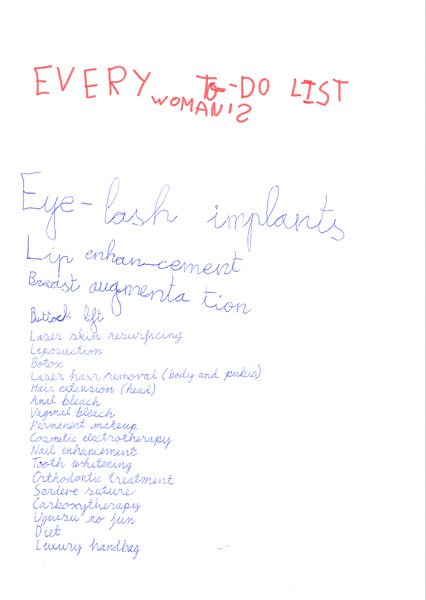 EVERY WOMAN'S TO-DO LIST
Eye-lash implants
Lip enhan-cement
Breast augmenta tion
Buttock lift
Laser skin resurficing
Liposuction
Botox
Laser hair removal (body and pubic)
Hair extension (head)
Anal bleach
Vaginal bleach
Permanent makeup
Cosmetic electrotherapy
Nail enhancement
Tooth whitening
Orthodontic treatment
suture
Carboxytherapy
Uguisu no fun
Diet
Luxury handbag